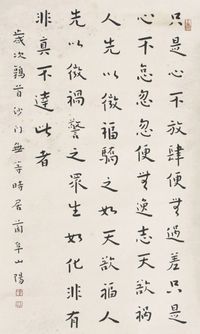 只是心不放肆便無過差只是
心不怠忽忽便無逸志天欲禍
人先以微福驕之如天欲福人
先以微禍警之眾生如化非有
非真不達此者
歲次鶉首沙门無等時居蘭阜山陽